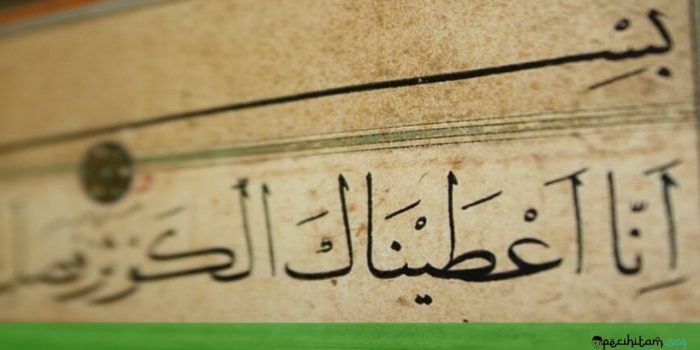 بِسْ
اَنَّا اَعْطَيْنَاكَ الْكَوْثَرَ فَصَلِّ
pecihitam.org